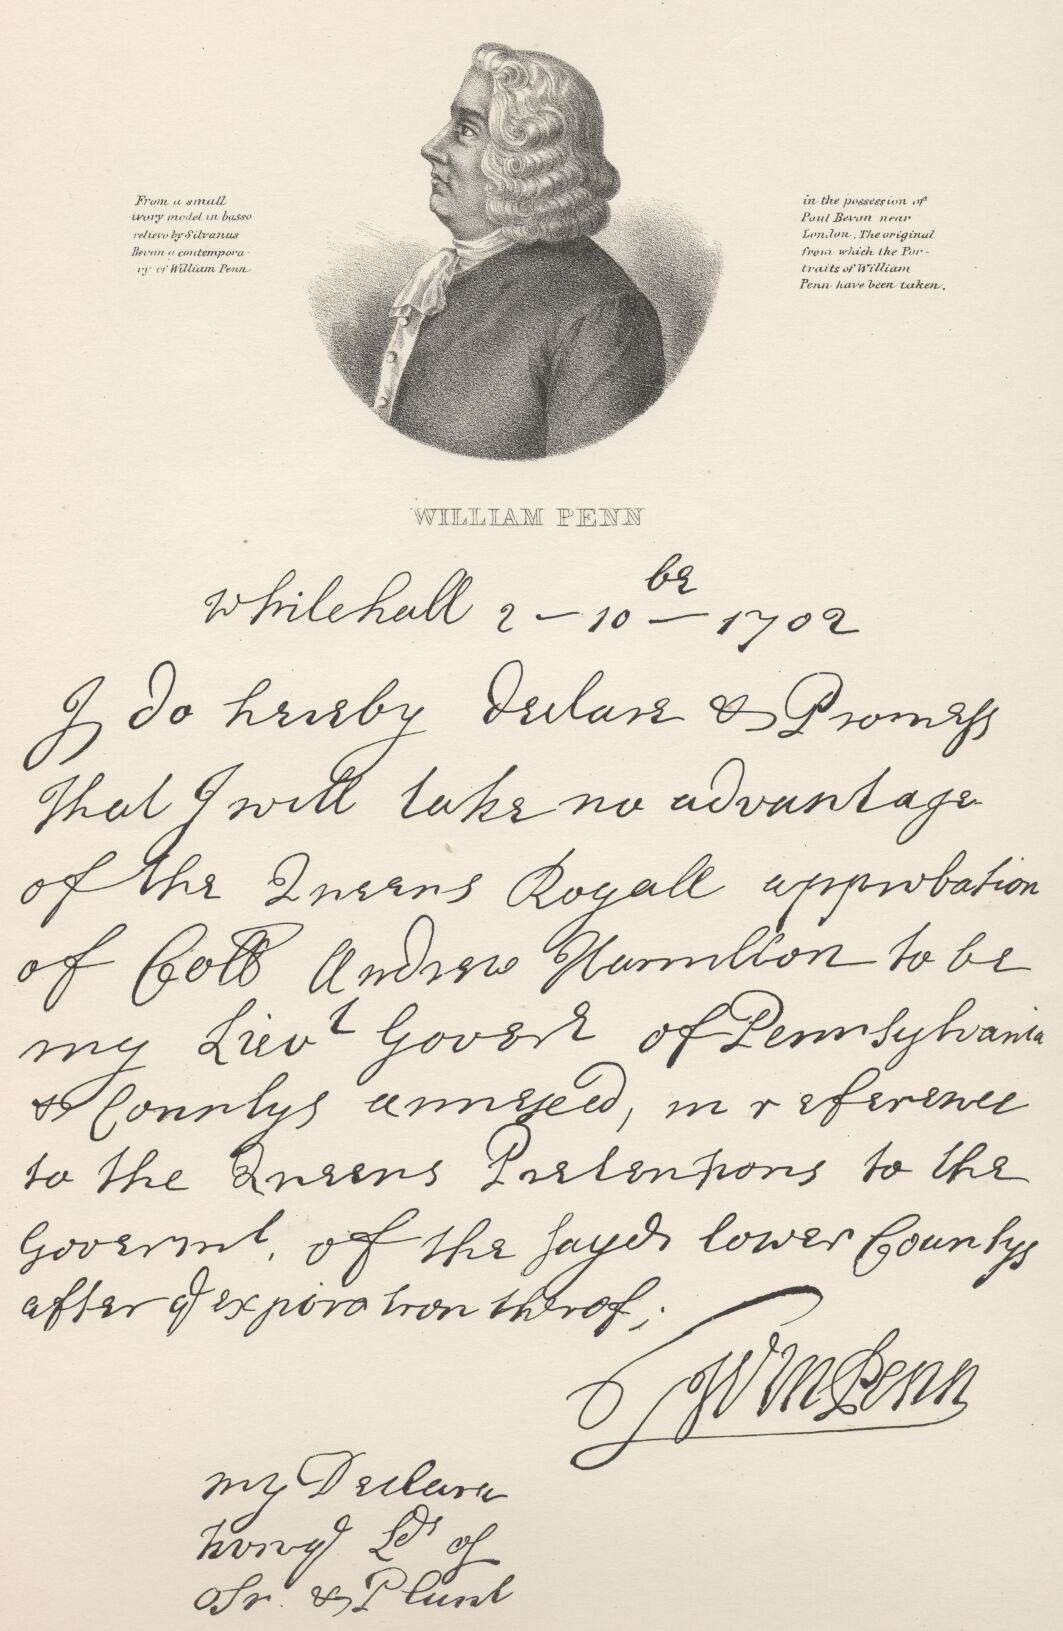 From a small
ivory model in basso
relievo by Silvanus
Bevan a contempora-
ry of William Penn
in the possession of
Paul Bevan near
London. The original
from which the Por-
traits of William
Penn have been taken.
WILLIAM PENN
Whitehall 2 – 10 be – 1702
I do hereby declare & Promess
that I will take no advantage
of the Queens Royall approbation
of Coll Andrew Hamilton to be
my Lievt Goverr of Pennsylvania
& Countys annexed, in reference
to the Queens Pretentions to the
Governmt. of the sayd lower Countys
after ye expiration therof;
Wm Penn
my Declara
tion yd Lds of
Tr. & Plant